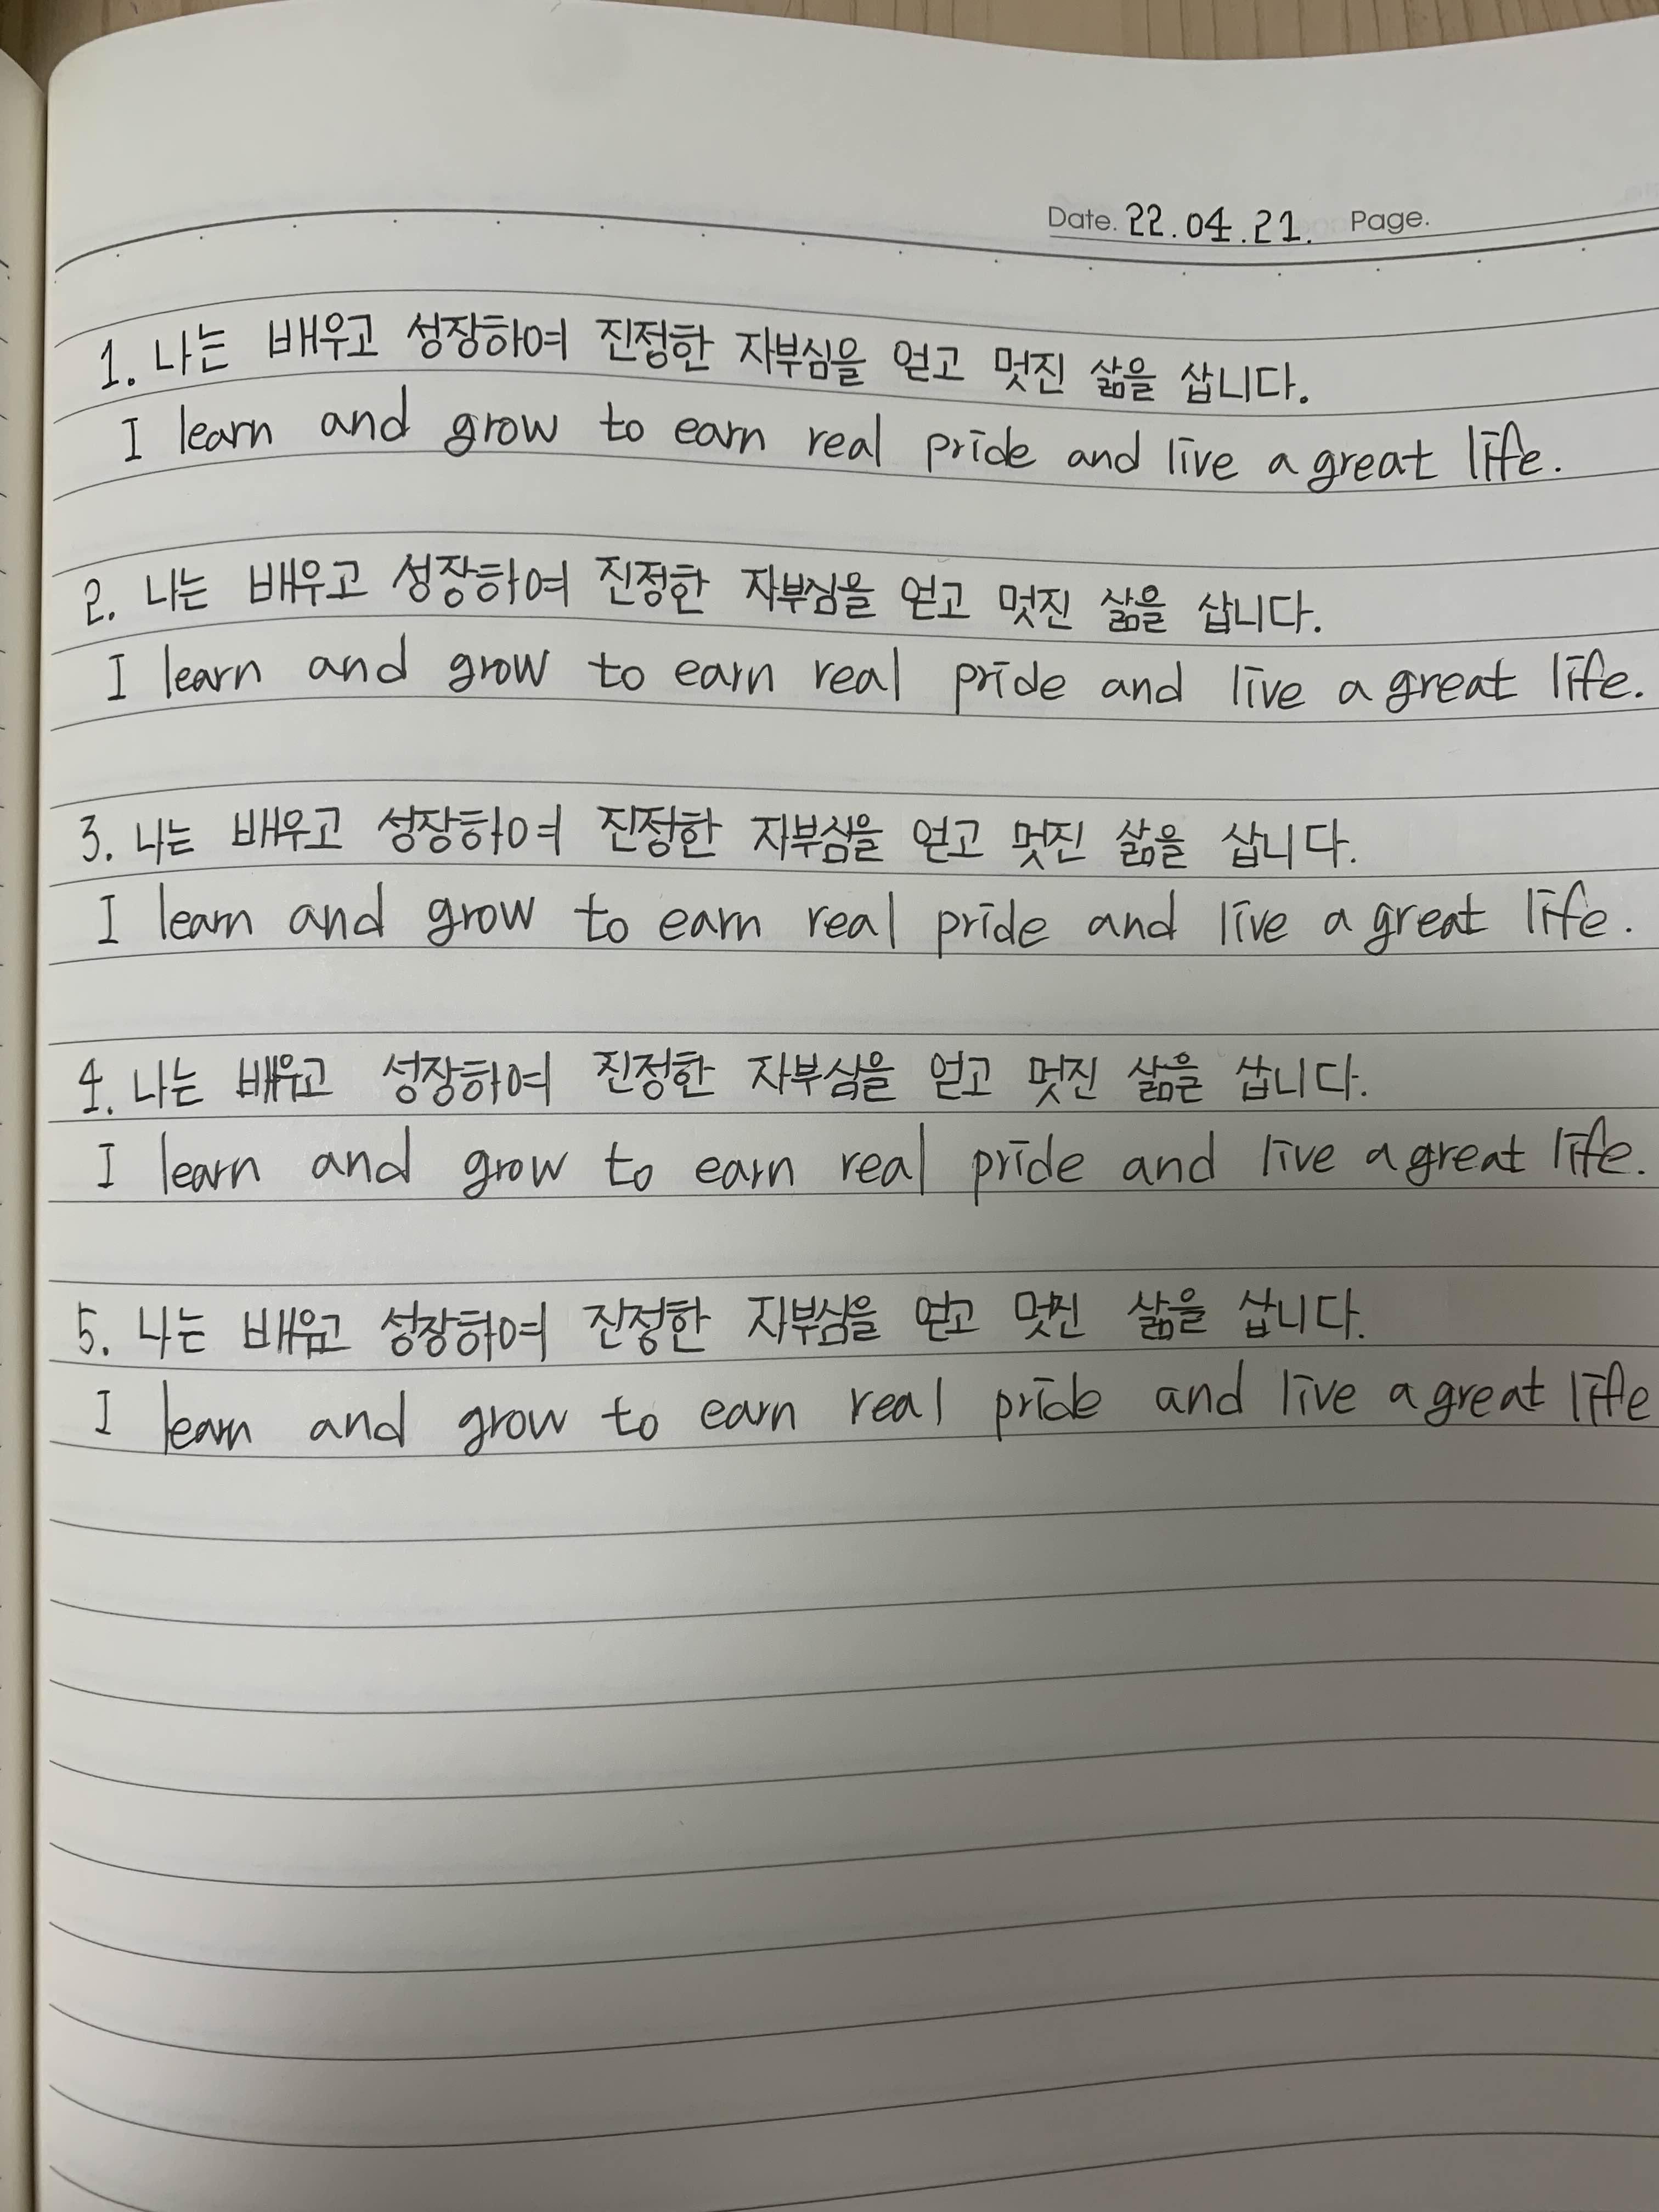 Date. 22.04.21. Page.
1. 나는 배우고 성장하여 진정한 자부심을 얻고 멋진 삶을 삽니다.
I learn and grow to earn real pride and live a great life.
2. 나는 배우고 성장하여 진정한 자부심을 얻고 멋진 삶을 삽니다.
I learn and grow to earn real pride and live a great life.
3. 나는 배우고 성장하여 진정한 자부심을 얻고 멋진 삶을 삽니다.
I learn and grow to earn real pride and live a great life.
4. 나는 배우고 성장하여 진정한 자부심을 얻고 멋진 삶을 삽니다.
I learn and grow to earn real pride and live a great life.
5. 나는 배우고 성장하여 진정한 자부심을 얻고 멋진 삶을 삽니다.
I learn and grow to earn real pride and live a great life